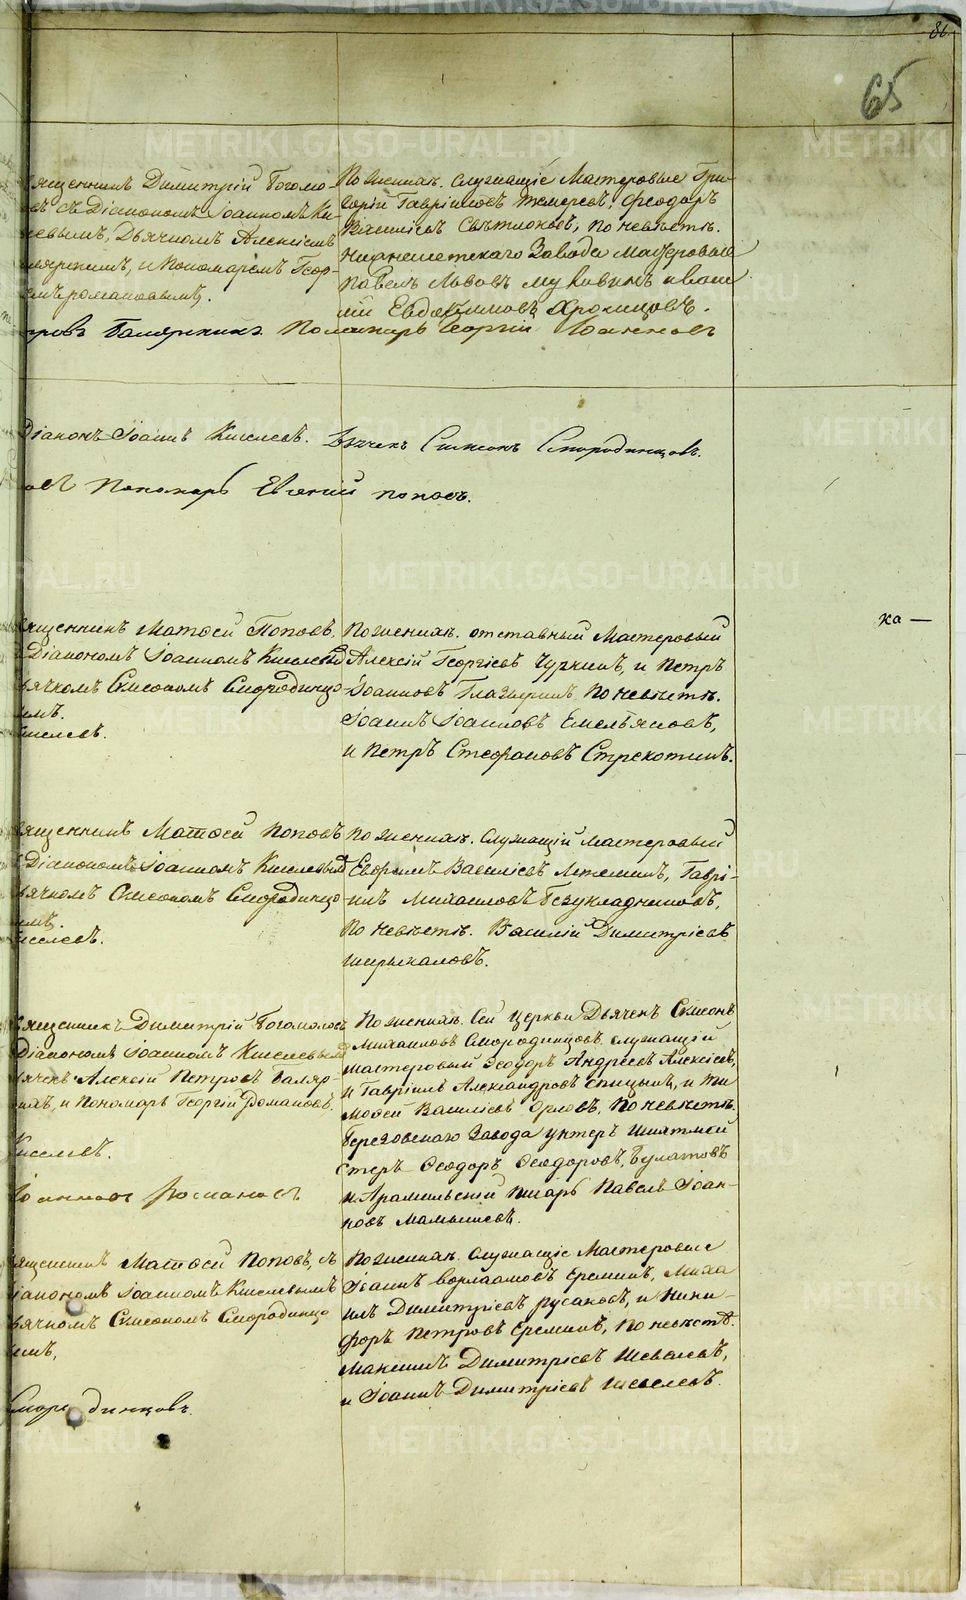 86
65
Священникъ Димитрій Богомо-
съ Діакономъ Іоанномъ Ки-
евымъ, Дьячкомъ Алексіемъ
и Пономаремъ Геор-
Романовымъ.
Пономарь Георгій
По женихѣ. Служащіе Мастеровые Гри-
горій Гавріиловъ Федоръ
Василіевъ Свѣтлаковъ, По невѣстѣ.
Нижнеисетскаго Завода Мастеровые
Павелъ Львовъ
Евдокимовъ
Діаконъ Іоаннъ Киселевъ. Дьячекъ Симеонъ Смородинцовъ.
Пономарь Евгеній Поповъ.
ка —
ященникъ Матѳей Поповъ.
Діакономъ Іоанномъ Киселевымъ
ячкомъ Симеономъ Смородинцо-
ымъ.
иселевъ.
По женихѣ. отставный Мастеровый
Алексій Георгіевъ Чуркинъ, и Петръ
Іоанновъ Глазыринъ По невѣстѣ.
Іоаннъ Іоанновъ Емельяновъ,
и Петръ Стефановъ Стрекотинъ.
ященникъ Матѳей Поповъ
Діакономъ Іоанномъ Киселевымъ
ячкомъ Симеономъ Смородинцо-
ымъ.
иселевъ.
По женихѣ. Служащій Мастеровый
Ефремъ Василіевъ Гаврі-
илъ Михаиловъ Безукладниковъ,
По невѣстѣ. Василій Димитріевъ
ященникъ Димитрій Богомоловъ
Діакономъ Іоанномъ Киселевымъ
ячекъ Алексій Петровъ Баляр-
инъ, и Пономарь Георгій Романовъ.
Киселевъ.
По женихѣ. Сей Церкви Дьячекъ Симеонъ
Михаиловъ Смородинцовъ служащій
мастеровый Ѳеодоръ Андреевъ Алексіевъ,
и Гавріилъ Александровъ Спицынъ, и Ти-
моѳей Василіевъ Орловъ, По невѣстѣ.
Березовскаго Завода унтеръ Шихтмей
стеръ Ѳеодоръ Ѳеодоровъ, Булатовъ
и Арамильскій писарь Павелъ Іоан-
новъ Мамышевъ.
ященникъ Матѳей Поповъ, съ
іакономъ Іоанномъ Киселевымъ
ячкомъ Симеономъ Смородинцо
ымъ,
Смородинцовъ.
По женихѣ. Служащіе Мастеровые
Іоаннъ Варлаамовъ Ереминъ, Миха
илъ Димитріевъ Русаковъ, и Ники-
форъ Петровъ Ереминъ, По невѣстѣ.
Максимъ Димитріевъ Шевелевъ,
и Іоаннъ Димитріевъ Шевелевъ.
METRIKI.GASO-URAL.RU